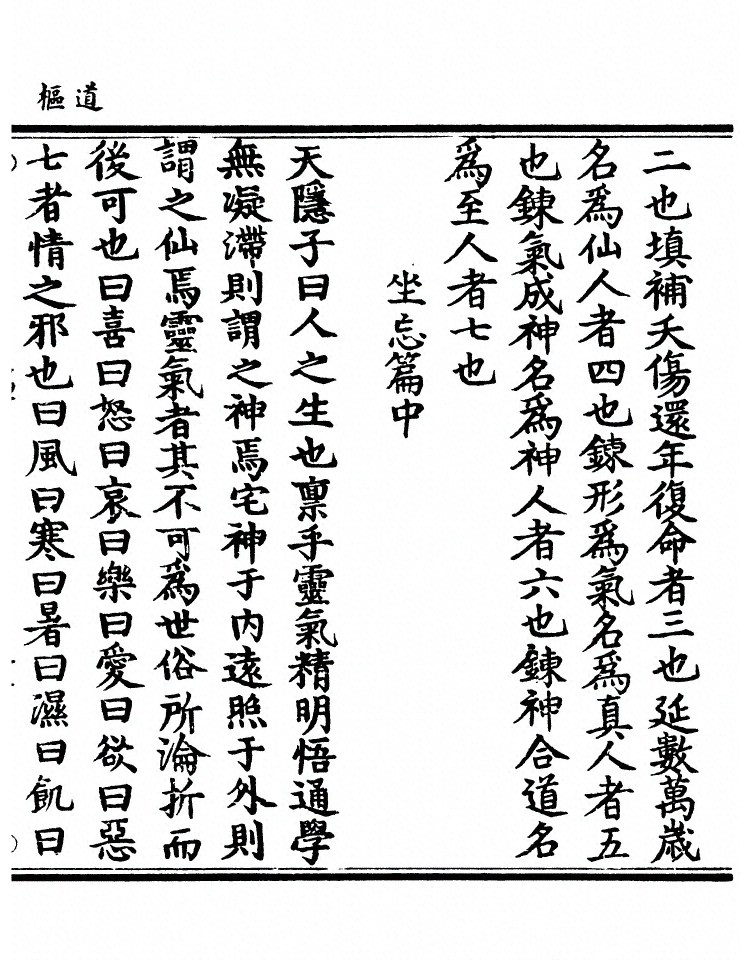 道樞
二也填補夭傷還年復命者三也延數萬歲
名爲仙人者四也鍊形爲氣名爲真人者五
也鍊氣成神名爲神人者六也鍊神合道名
爲至人者七也
坐忘篇中
天隱子曰人之生也禀乎靈氣精明悟通學
無凝滯則謂之神焉宅神于内遠照于外則
謂之仙焉靈氣者其不可爲世俗所淪折而
後可也曰喜曰怒曰哀曰樂曰愛曰欲曰惡
七者情之邪也曰風曰寒曰暑曰濕曰飢曰